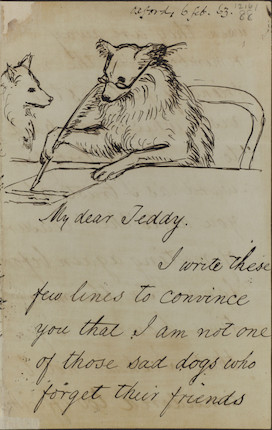 6 feb. 63.
My dear Teddy.
I write these
few lines to convince
you that I am not one
of those sad dogs who
forget their friends